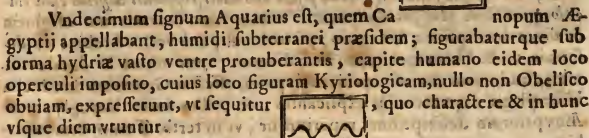 Vndecimum ſignum Aquarius eſt, quem Ca nopum Æ-
gyptij appellabant, humidi ſubterranei præſidem; figurabaturque ſub
forma hydriæ vaſto ventre protuberantis, capite humano eidem loco
operculi impoſito, cuius loco figuram Kyriologicam, nullo non Obeliſco
obuiam, expreſſerunt, vt ſequitur , quo charactere & in hunc
vſque diem vtuntur.